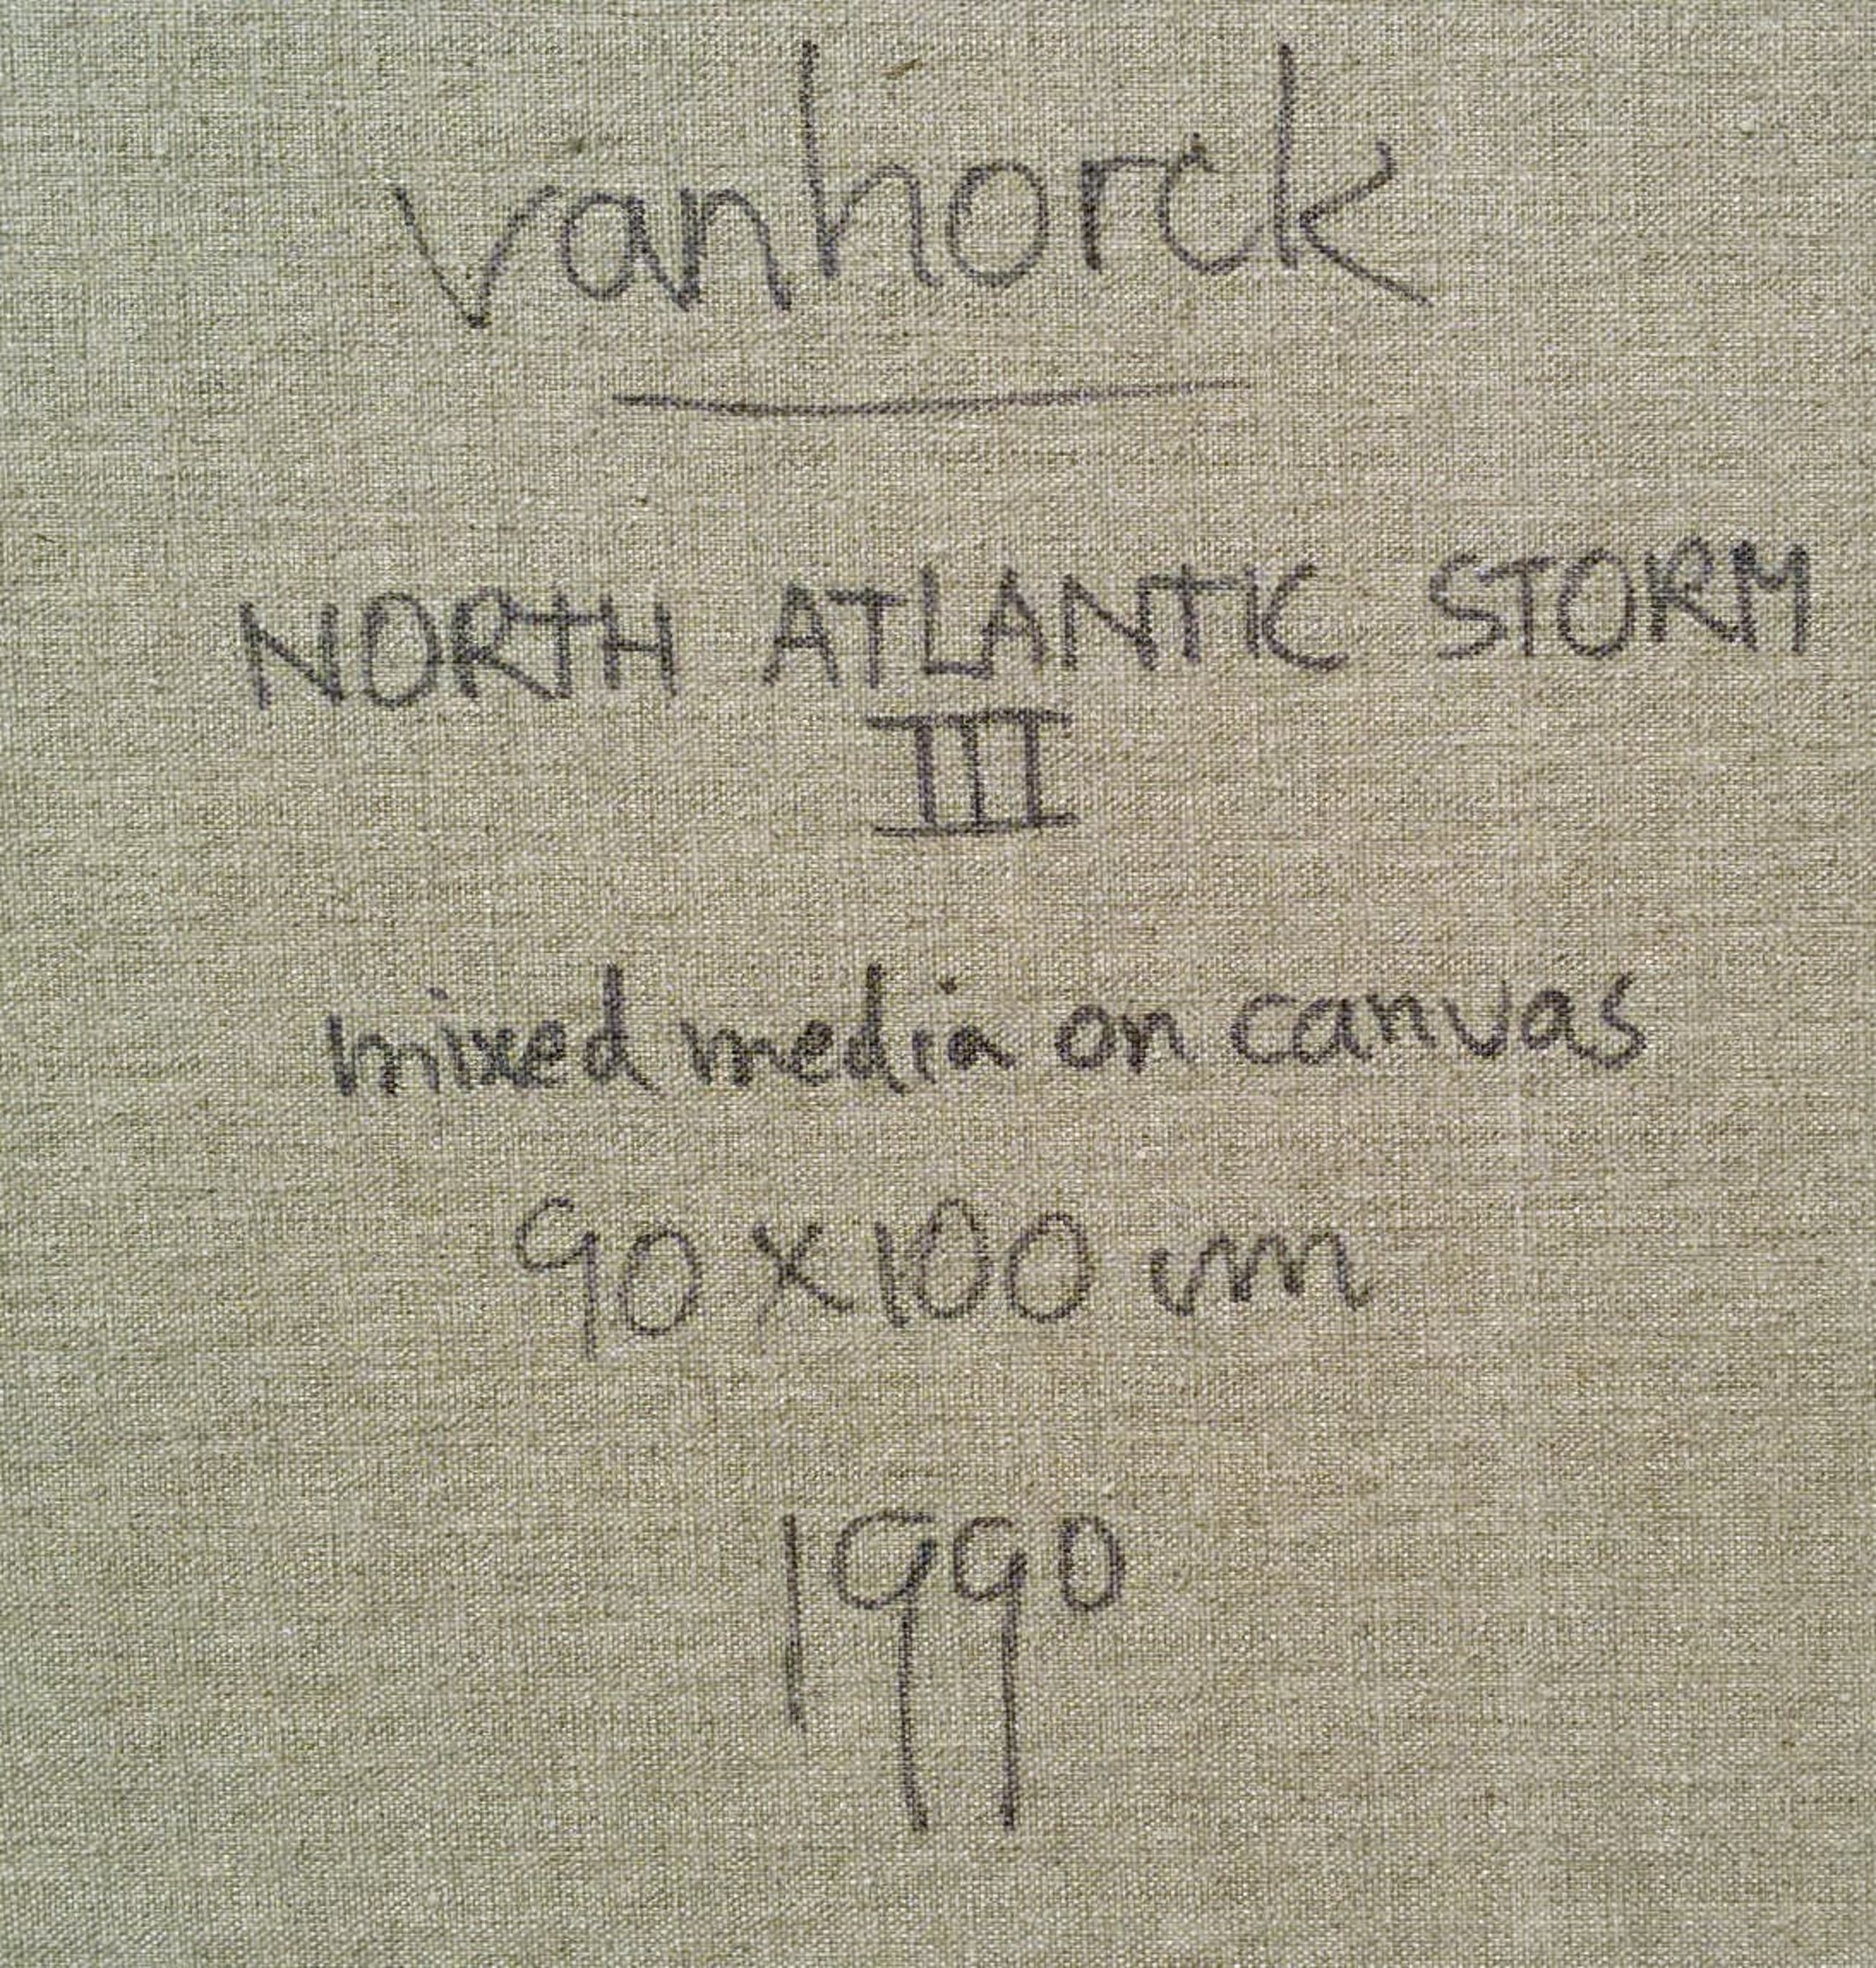 vanhorck
NORTH ATLANTIC STORM
III
mixed media on canvas
90 x 100 cm
1990